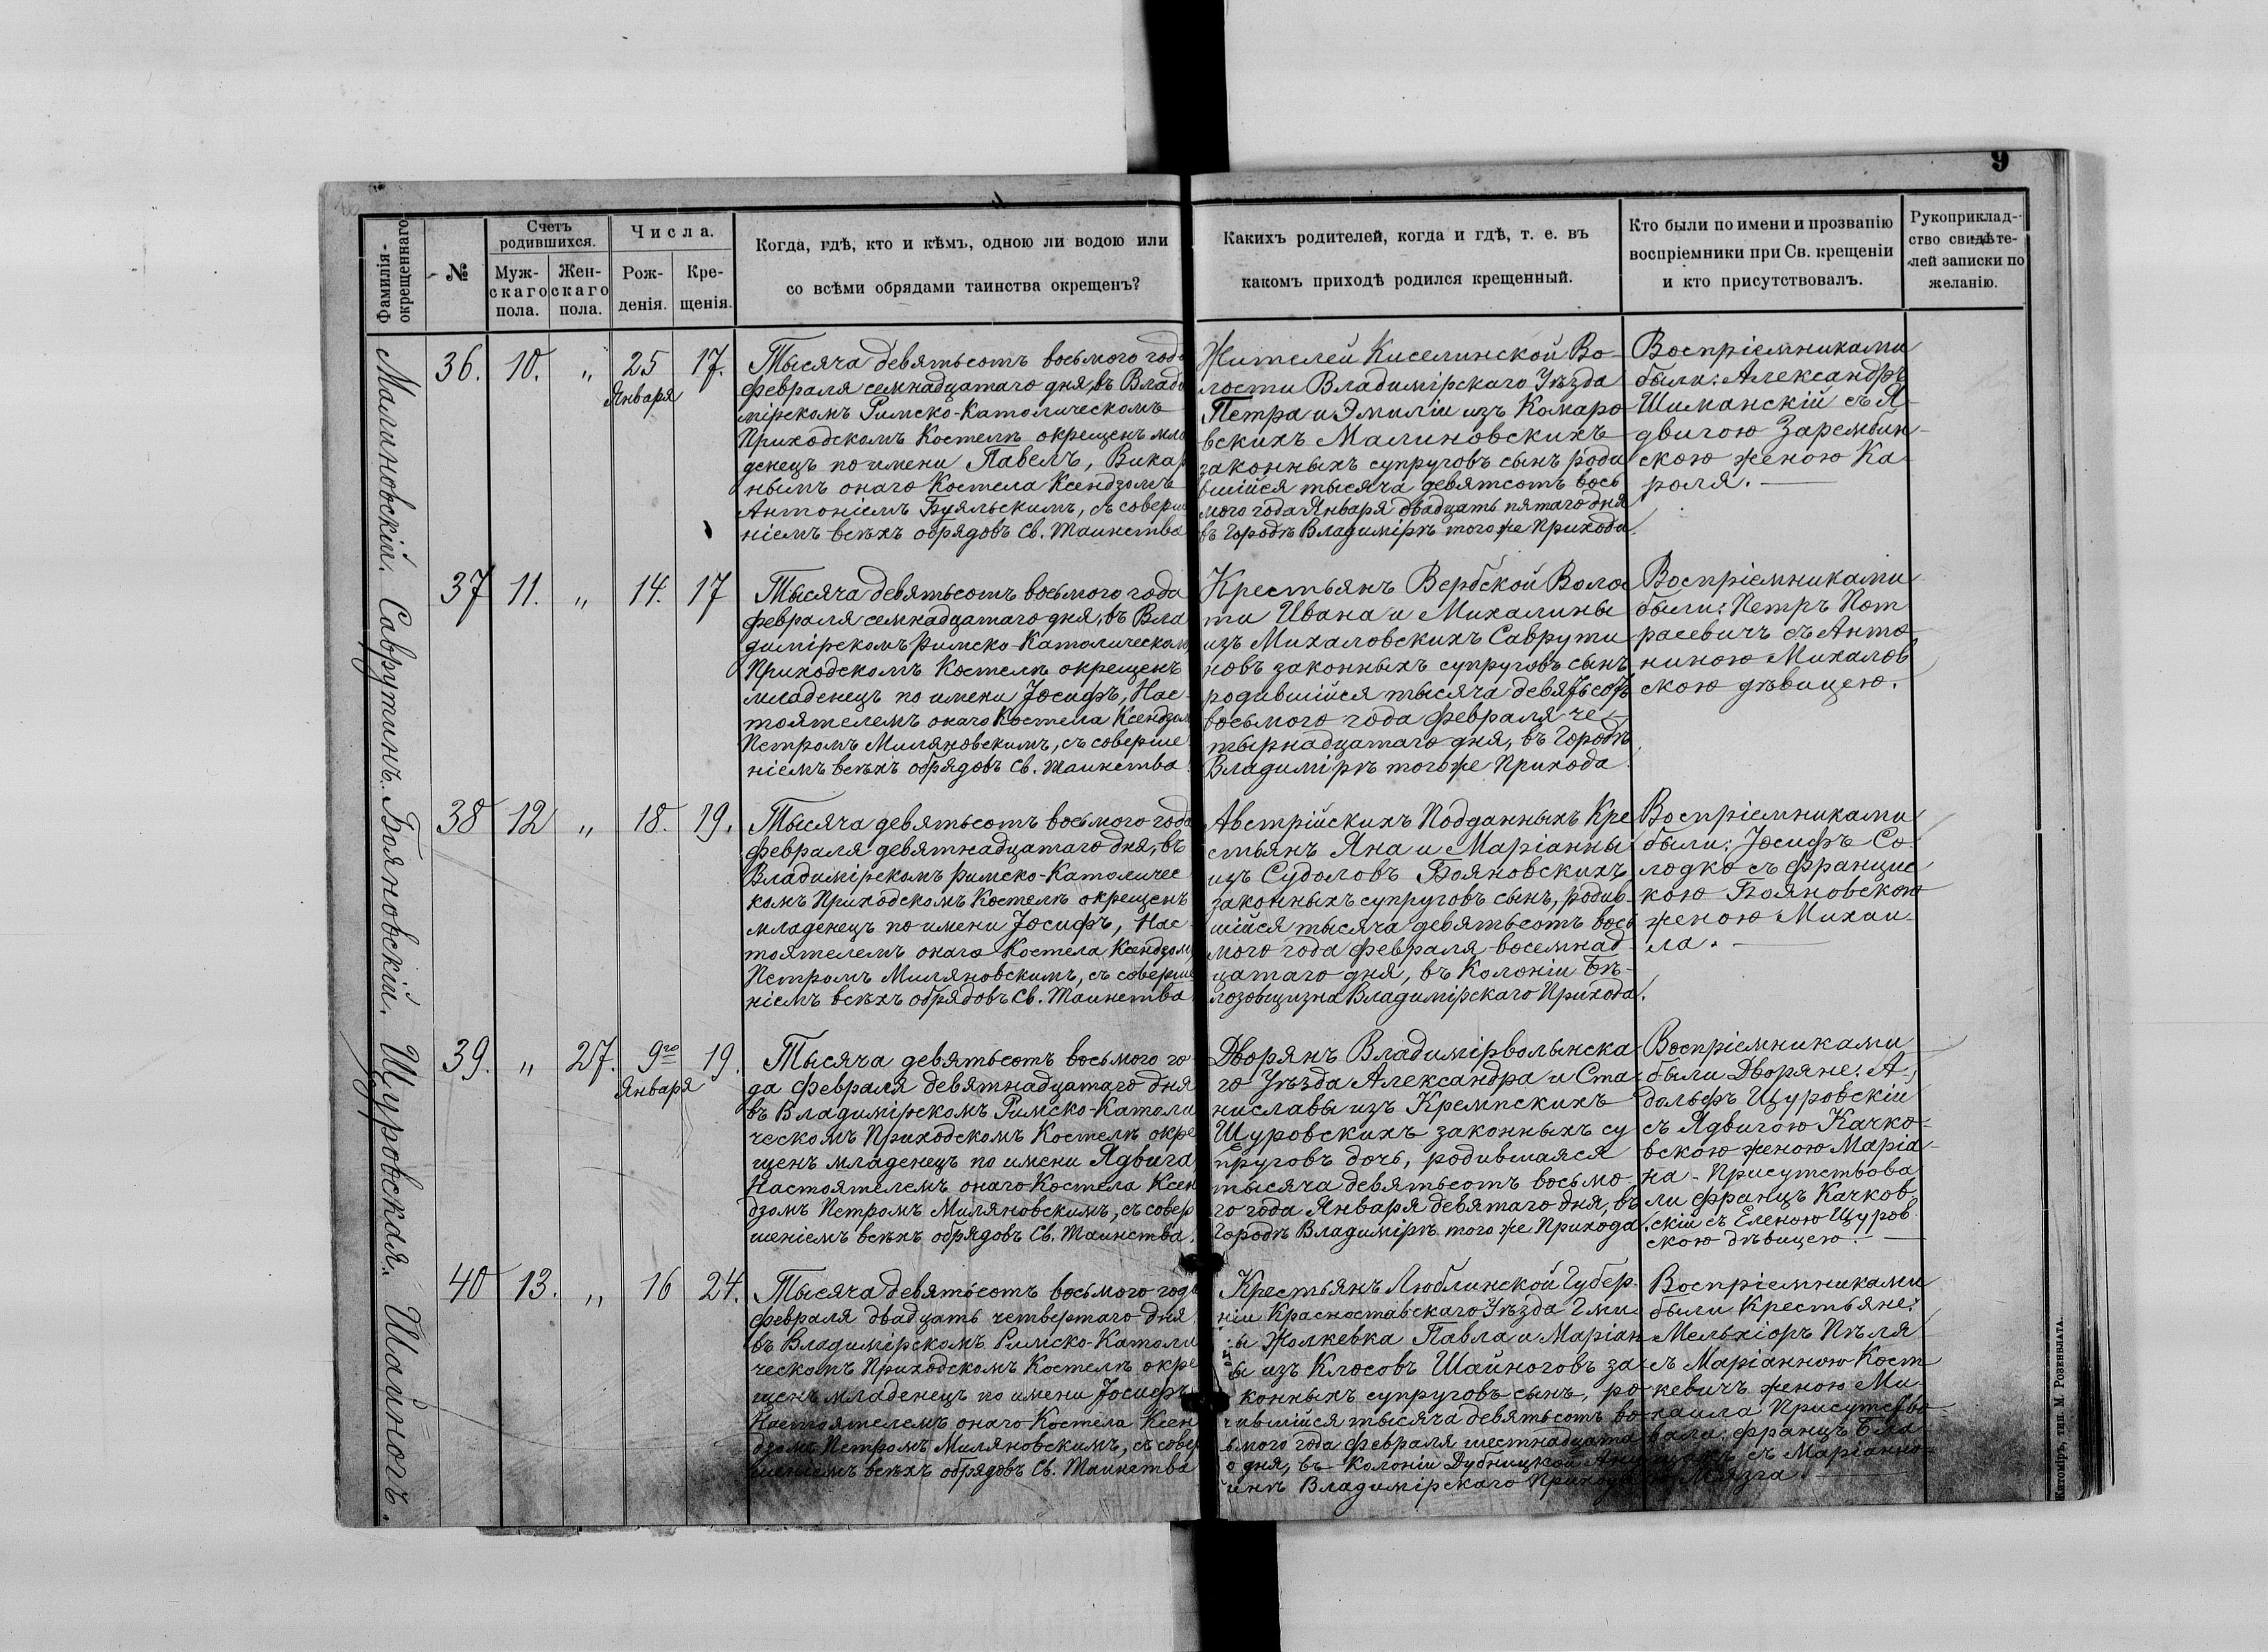 9
Фамилія окрещеннаго
№
Счетъ родившихся.
Мужскаго пола.
Женскаго пола.
Числа.
Рожденія.
Крещенія.
Когда, гдѣ, кто и кѣмъ, одною ли водою или
со всѣми обрядами таинства окрещенъ?
Какихъ родителей, когда и гдѣ, т. е. въ
какомъ приходѣ родился крещенный.
Кто были по имени и прозванію
воспріемники при Св. крещеніи
и кто присутствовалъ.
Рукоприклад-
ство свидѣте-
лей записки по
желанію.
Малиновскій.
36. 10. „ 25 Января 17.
Тысяча девятьсотъ восьмого года
февраля семнадцатаго дня, въ Влади
мірскомъ Римско-Католическомъ
Приходскомъ Костелѣ окрещенъ мла
денецъ по имени Павелъ, Викар
нымъ онаго Костела Ксендзомъ
Антоніемъ Буяльскимъ, съ соверше
ніемъ всѣхъ обрядовъ Св. Таинства
Жителей Киселинской Во-
лости Владимірскаго Уѣзда
Петра и Эмиліи изъ Комаро
вскихъ Малиновскихъ
законныхъ супруговъ сынъ роди
вшійся тысяча девятсотъ вось
мого года Января двадцать пятаго дня
въ Городѣ Владимірѣ того же Прихода
Воспріемниками
были: Александръ
Шиманскій съ Я
двигою Зарембин-
скою женою Ка
роля.
Саврутинъ.
37 11. „ 14. 17
Тысяча девятьсотъ восьмого года
февраля семнадцатаго дня, въ Вла
димірскомъ Римско-Католическомъ
Приходскомъ Костелѣ окрещенъ
младенецъ по имени Іосифъ, Нас-
тоятелемъ онаго Костела Ксендзом
Петромъ Миляновскимъ, съ соверше
ніемъ всѣхъ обрядовъ Св. Таинства.
Крестьянъ Вербской Волос
ти Ивана и Михалины
изъ Михаловскихъ Саврути
новъ законныхъ супруговъ сынъ
родившійся тысяча девятьсотъ
восьмого года февраля че-
тырнадцатаго дня, въ Городѣ
Владимірѣ того же Прихода.
Воспріемниками
были: Петръ Пот
расевичъ съ Анто
ниною Михалов
скою дѣвицею.
Бояновскій.
38 12 „ 18. 19.
Тысяча девятьсотъ восьмого года
февраля девятнадцатаго дня, въ
Владимірскомъ Римско-Католичес
комъ Приходскомъ Костелѣ окрещенъ
младенецъ по имени Іосифъ, Нас-
тоятелемъ онаго Костела Ксендзомъ
Петромъ Миляновскимъ, съ соверше
ніемъ всѣхъ обрядовъ Св. Таинства
Австрійскихъ Подданныхъ Кре
стьянъ Яна и Маріанны
изъ Судоловъ Бояновскихъ
законныхъ супруговъ сынъ, родив-
шійся тысяча девятьсотъ вось
мого года февраля восемнад
цатаго дня, въ Колоніи Бѣ-
лозовщизна Владимірскаго Прихода.
Воспріемниками
были: Іосифъ Со
лодко съ Францис
кою Бояновскою
женою Михаи-
ла.
Щуровская.
39. „ 27. 9го Января 19.
Тысяча девятьсотъ восьмого го-
да февраля девятнадцатаго дня
въ Владимірскомъ Римско-Католи
ческомъ Приходскомъ Костелѣ окре
щенъ младенецъ по имени Ядвига
Настоятелемъ онаго Костела Ксен
дзомъ Петромъ Миляновскимъ, съ совер
шеніемъ всѣхъ обрядовъ Св. Таинства.
Дворянъ Владимірволынска
го Уѣзда Александра и Ста-
ниславы изъ Кремпскихъ
Щуровскихъ законныхъ су
пруговъ дочь, родившаяся
тысяча девятьсотъ восьмо-
го года Января девятаго дня, въ
Городѣ Владимірѣ того же Прихода.
Воспріемниками
были Дворяне: А-
дольфъ Щуровскій
съ Ядвигою Качко-
вскою женою Маріа-
на - Присутствова
ли Францъ Качков
скій съ Еленою Щуров-
скою дѣвицею.
Шайногъ.
40 13. „ 16 24.
Тысяча девятьсотъ восьмого года
февраля двадцать четвертаго дня
въ Владимірскомъ Римско-Католи
ческомъ Приходскомъ Костелѣ окре
щенъ младенецъ по имени Іосифъ
Настоятелемъ онаго Костела Ксен
дзомъ Петромъ Миляновскимъ, съ совер
шеніемъ всѣхъ обрядовъ Св. Таинства
Крестьянъ Люблинской Губер-
ніи Красноставскаго Уѣзда Гми
ны Жолкевка Павла и Маріан
ны изъ Клосовъ Шайноговъ за-
конныхъ супруговъ сынъ, ро-
дившійся тысяча девятьсотъ во
сьмого года февраля шестнадцата
го дня, въ Колоніи Дубницкой
Владимірскаго Прихода
Воспріемниками
были Крестьяне:
Мельхіоръ Пѣля
съ Маріанною Кост
кевичъ женою Ми-
хаила Присутство
вали: Францъ
съ Маріанно
Мязга.
Житоміръ, тип. М. Розенблата.